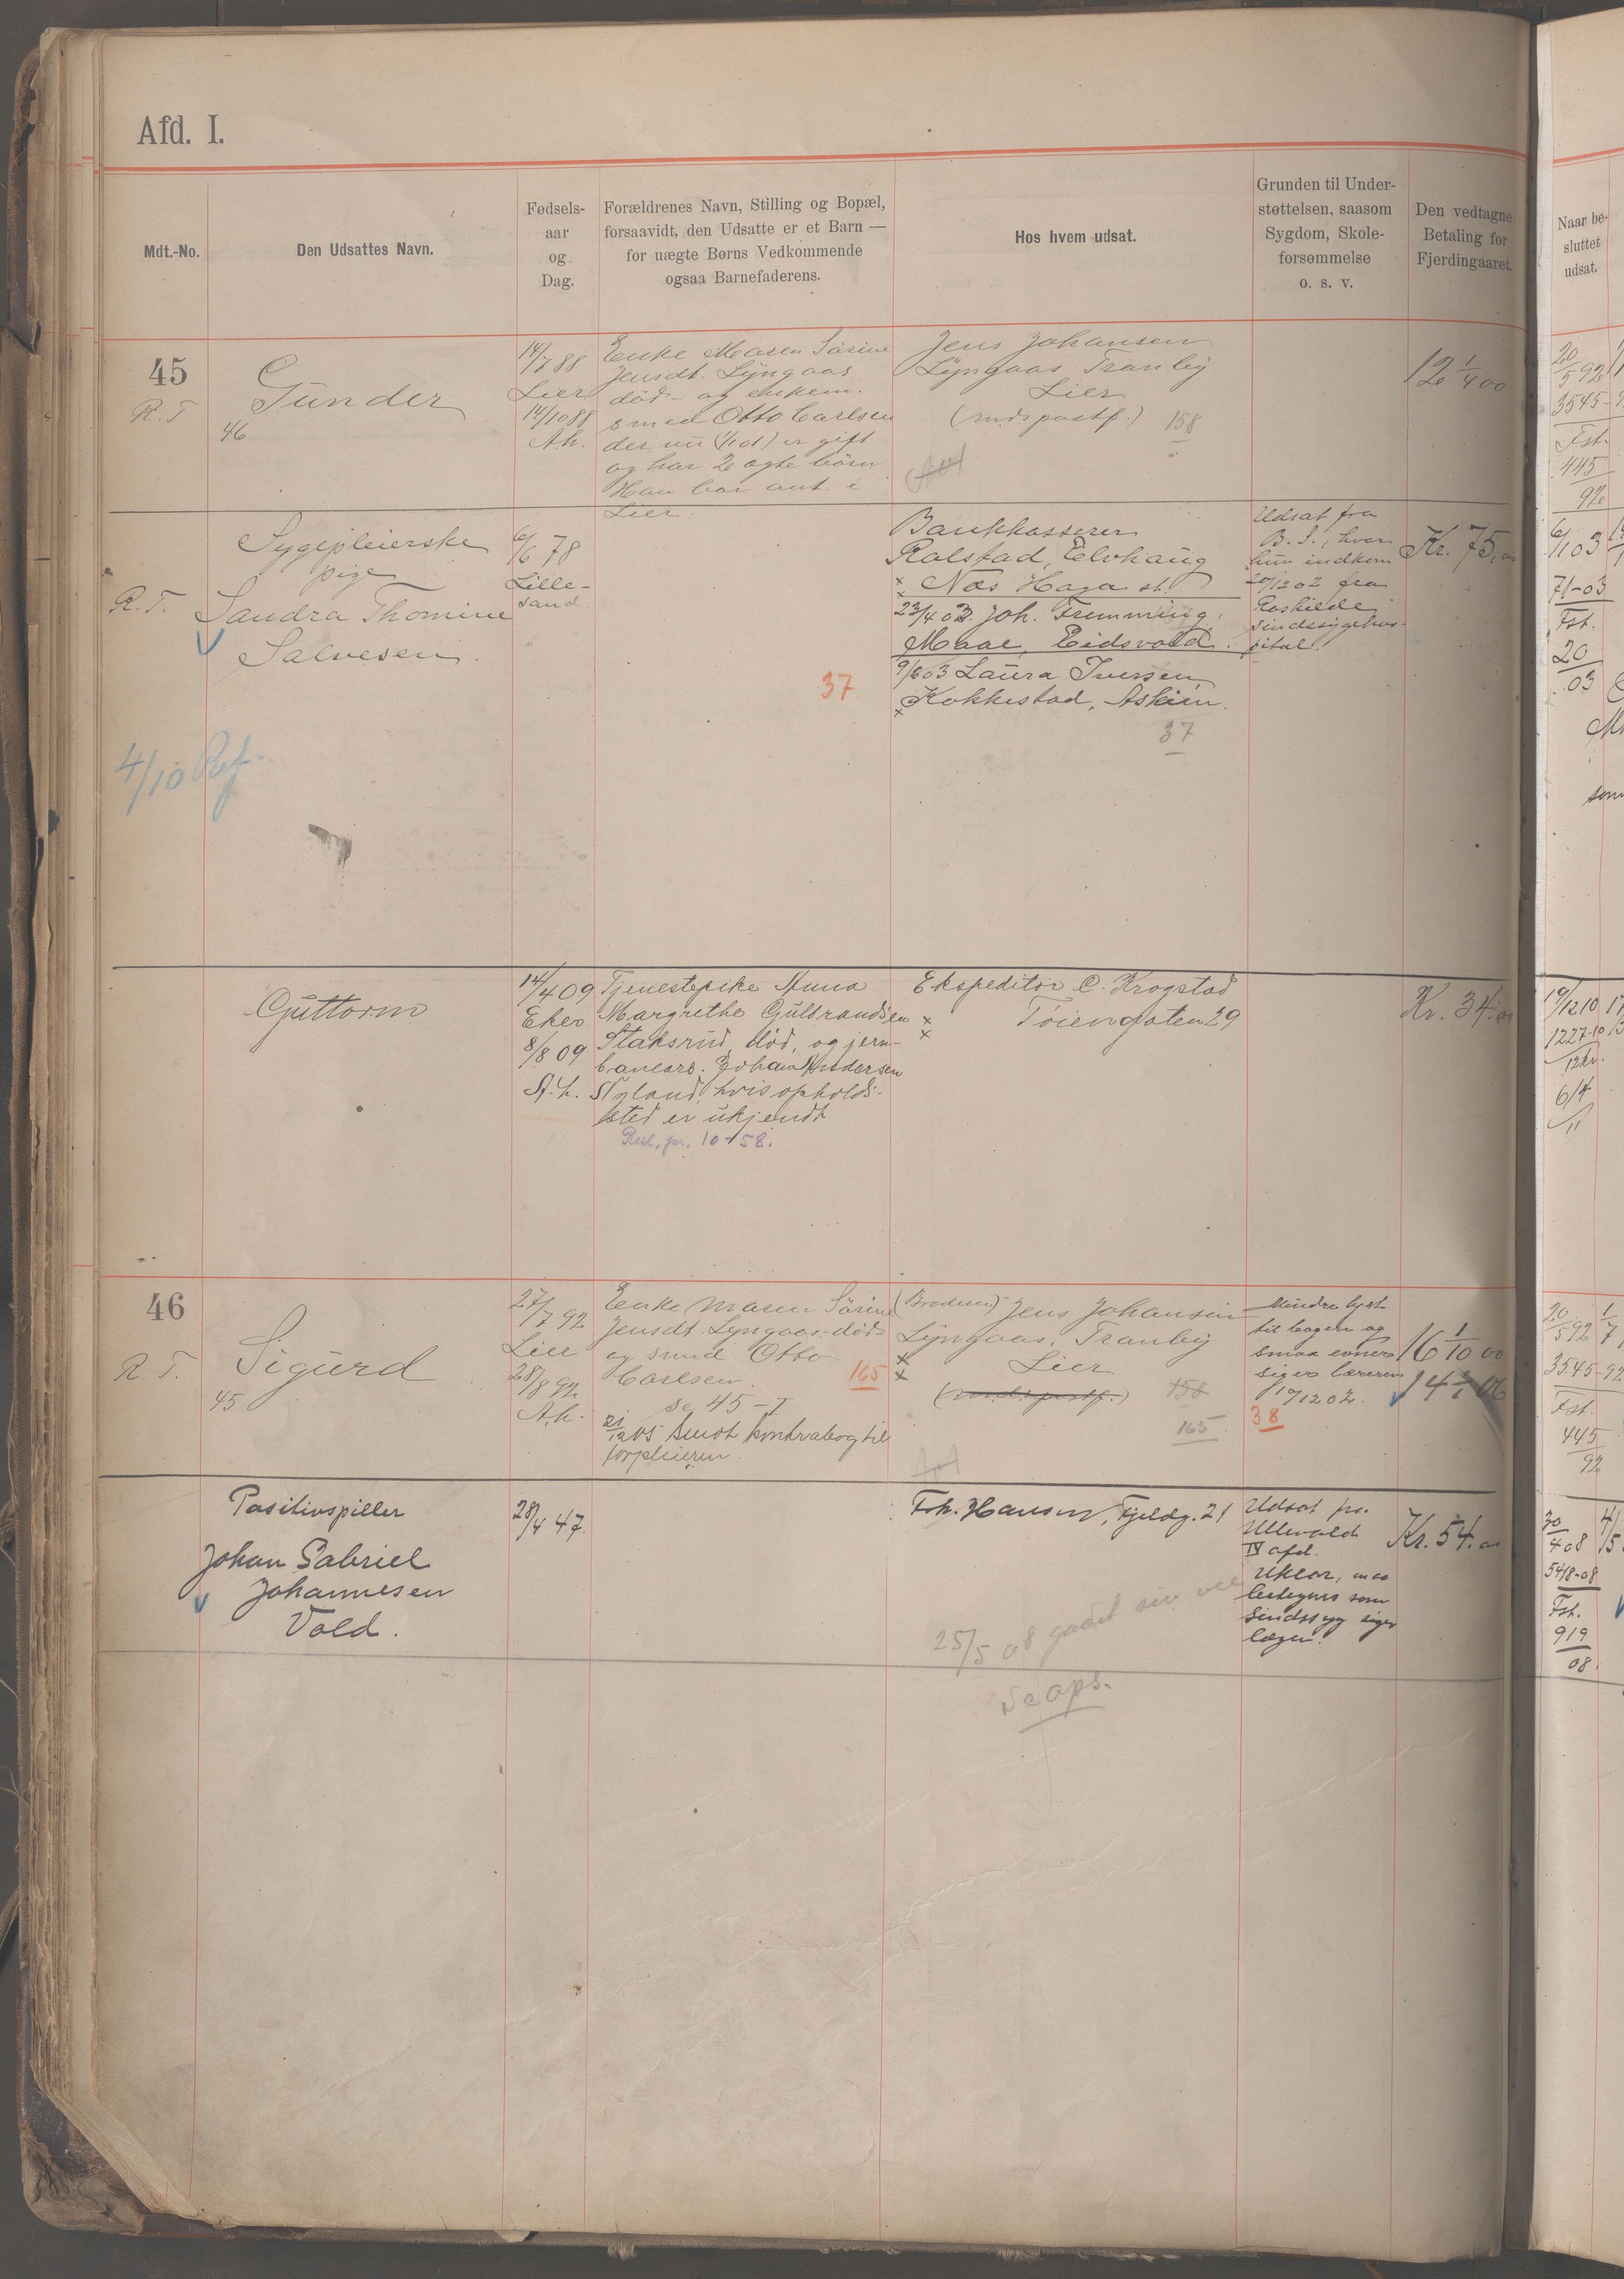 Afd. I.
Mdt.-No.
Den Udsattes Navn.
Fødsels-
aar
og
Dag.
Forældrenes Navn, Stilling og Bopæl,
forsaavidt, den Udsatte er et Barn —
for uægte Børns Vedkommende
ogsaa Barnefaderens.
Hos hvem udsat.
Grunden til Under-
støttelsen, saasom
Sygdom, Skole-
forsømmelse
o. s. v.
Den vedtagne
Betaling for
Fjerdingaaret.
Naar be-
sluttet
udsat.
45
R. T
Gunder
46
14/7 88
Lier
14/10 88
A.h.
Enke Maren Sørine
Jensdt. Lyngaas
død - og enkem.
smed Otto Carlsen
der nu (1/1 01) er gift
og har 2 ægte børn
Han bor ant. i
Lier
Jens Johansen
Lyngaas Tranby
Lier
158
12 1/4 00
20/5 92
3545-9
Fst.
445
92
R. T.
Sygepleierske
pige
Sandra Thomine
Salvesen.
6/6 78
Lille-
sand
37
Bankkasserer
Ralstad, Elvhaug
Næs Haga st.
23/4 03. Joh. Fremming,
Maae, Eidsvold.
9/6 03 Laura Iversen,
Kokkestad, Askim.
37
Udsat fra
B. S., hvor
hun indkom
20/12 02 fra
Roskilde
sindssygehos-
pital.
Kr. 75,00
6/1 03
71-03
Fst.
20
03
4/10
Guttorm
14/4 09
Eker
8/8 09
A.h.
Tjenestepike Anna
Margrethe Gulbrandsen
Staksrud, død, og jern-
banearb. Johan Andersen
Nyland hvis opholds-
sted er ukjendt
Resl. pr. 10-58.
Ekspeditør C. Krogstad
Tøiengaten 29
Kr. 34.00
19/12 10
1227-10
12kr.
6/4
46
R. T.
Sigurd
45
27/7 92
Lier
28/8 92
A.h.
Enke Maren Sørine
Jensdt Lyngaas - død -
og smed Otto
Carlsen.
se 45-I
21/12 05 sendt kontrabog til
forpleieren
165
(Broderen) Jens Johansen
Lyngaas, Tranby
Lier
158
165
Mindre lyst
til bogen og
smaa evner
siger læreren
/12 02.
38
16 1/10 00
14 06
20/5 92
3545-92
Fst.
445
92
Positivspiller
Johan Gabriel
Johannesen
Vold.
28/4 47.
Frk. Hansen, Fjeldg. 21
25/5 08 gaaet sin vei
Se ops.
Udsat fra
Ullevold
IV afd.
Uklar, maa
betegnes som
sindssyg siger
lægen.
Kr. 54.00
30/4 08
548-08
Fst.
919
08.